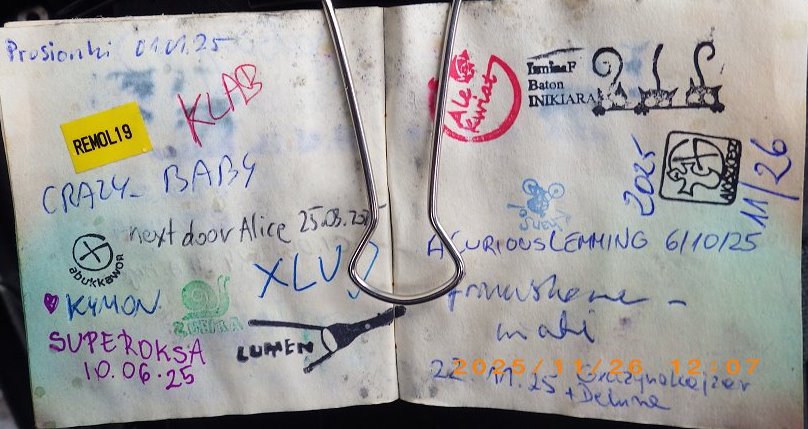 Prusionki 01.01.25
KLAB
REMOL19
CRAZY_ BABY
next door Alice 25.03.
abukkawor
XLUIJ
KYMON
SUPEROKSA
10.06.25
LUMEN
Ale
kwiat
IsminaF
Baton
INIKIARA
2025
11/26
ACURIOUSLEMMING 6/10/25
22.11.25
+ Deluna
2025/11/26 12:07